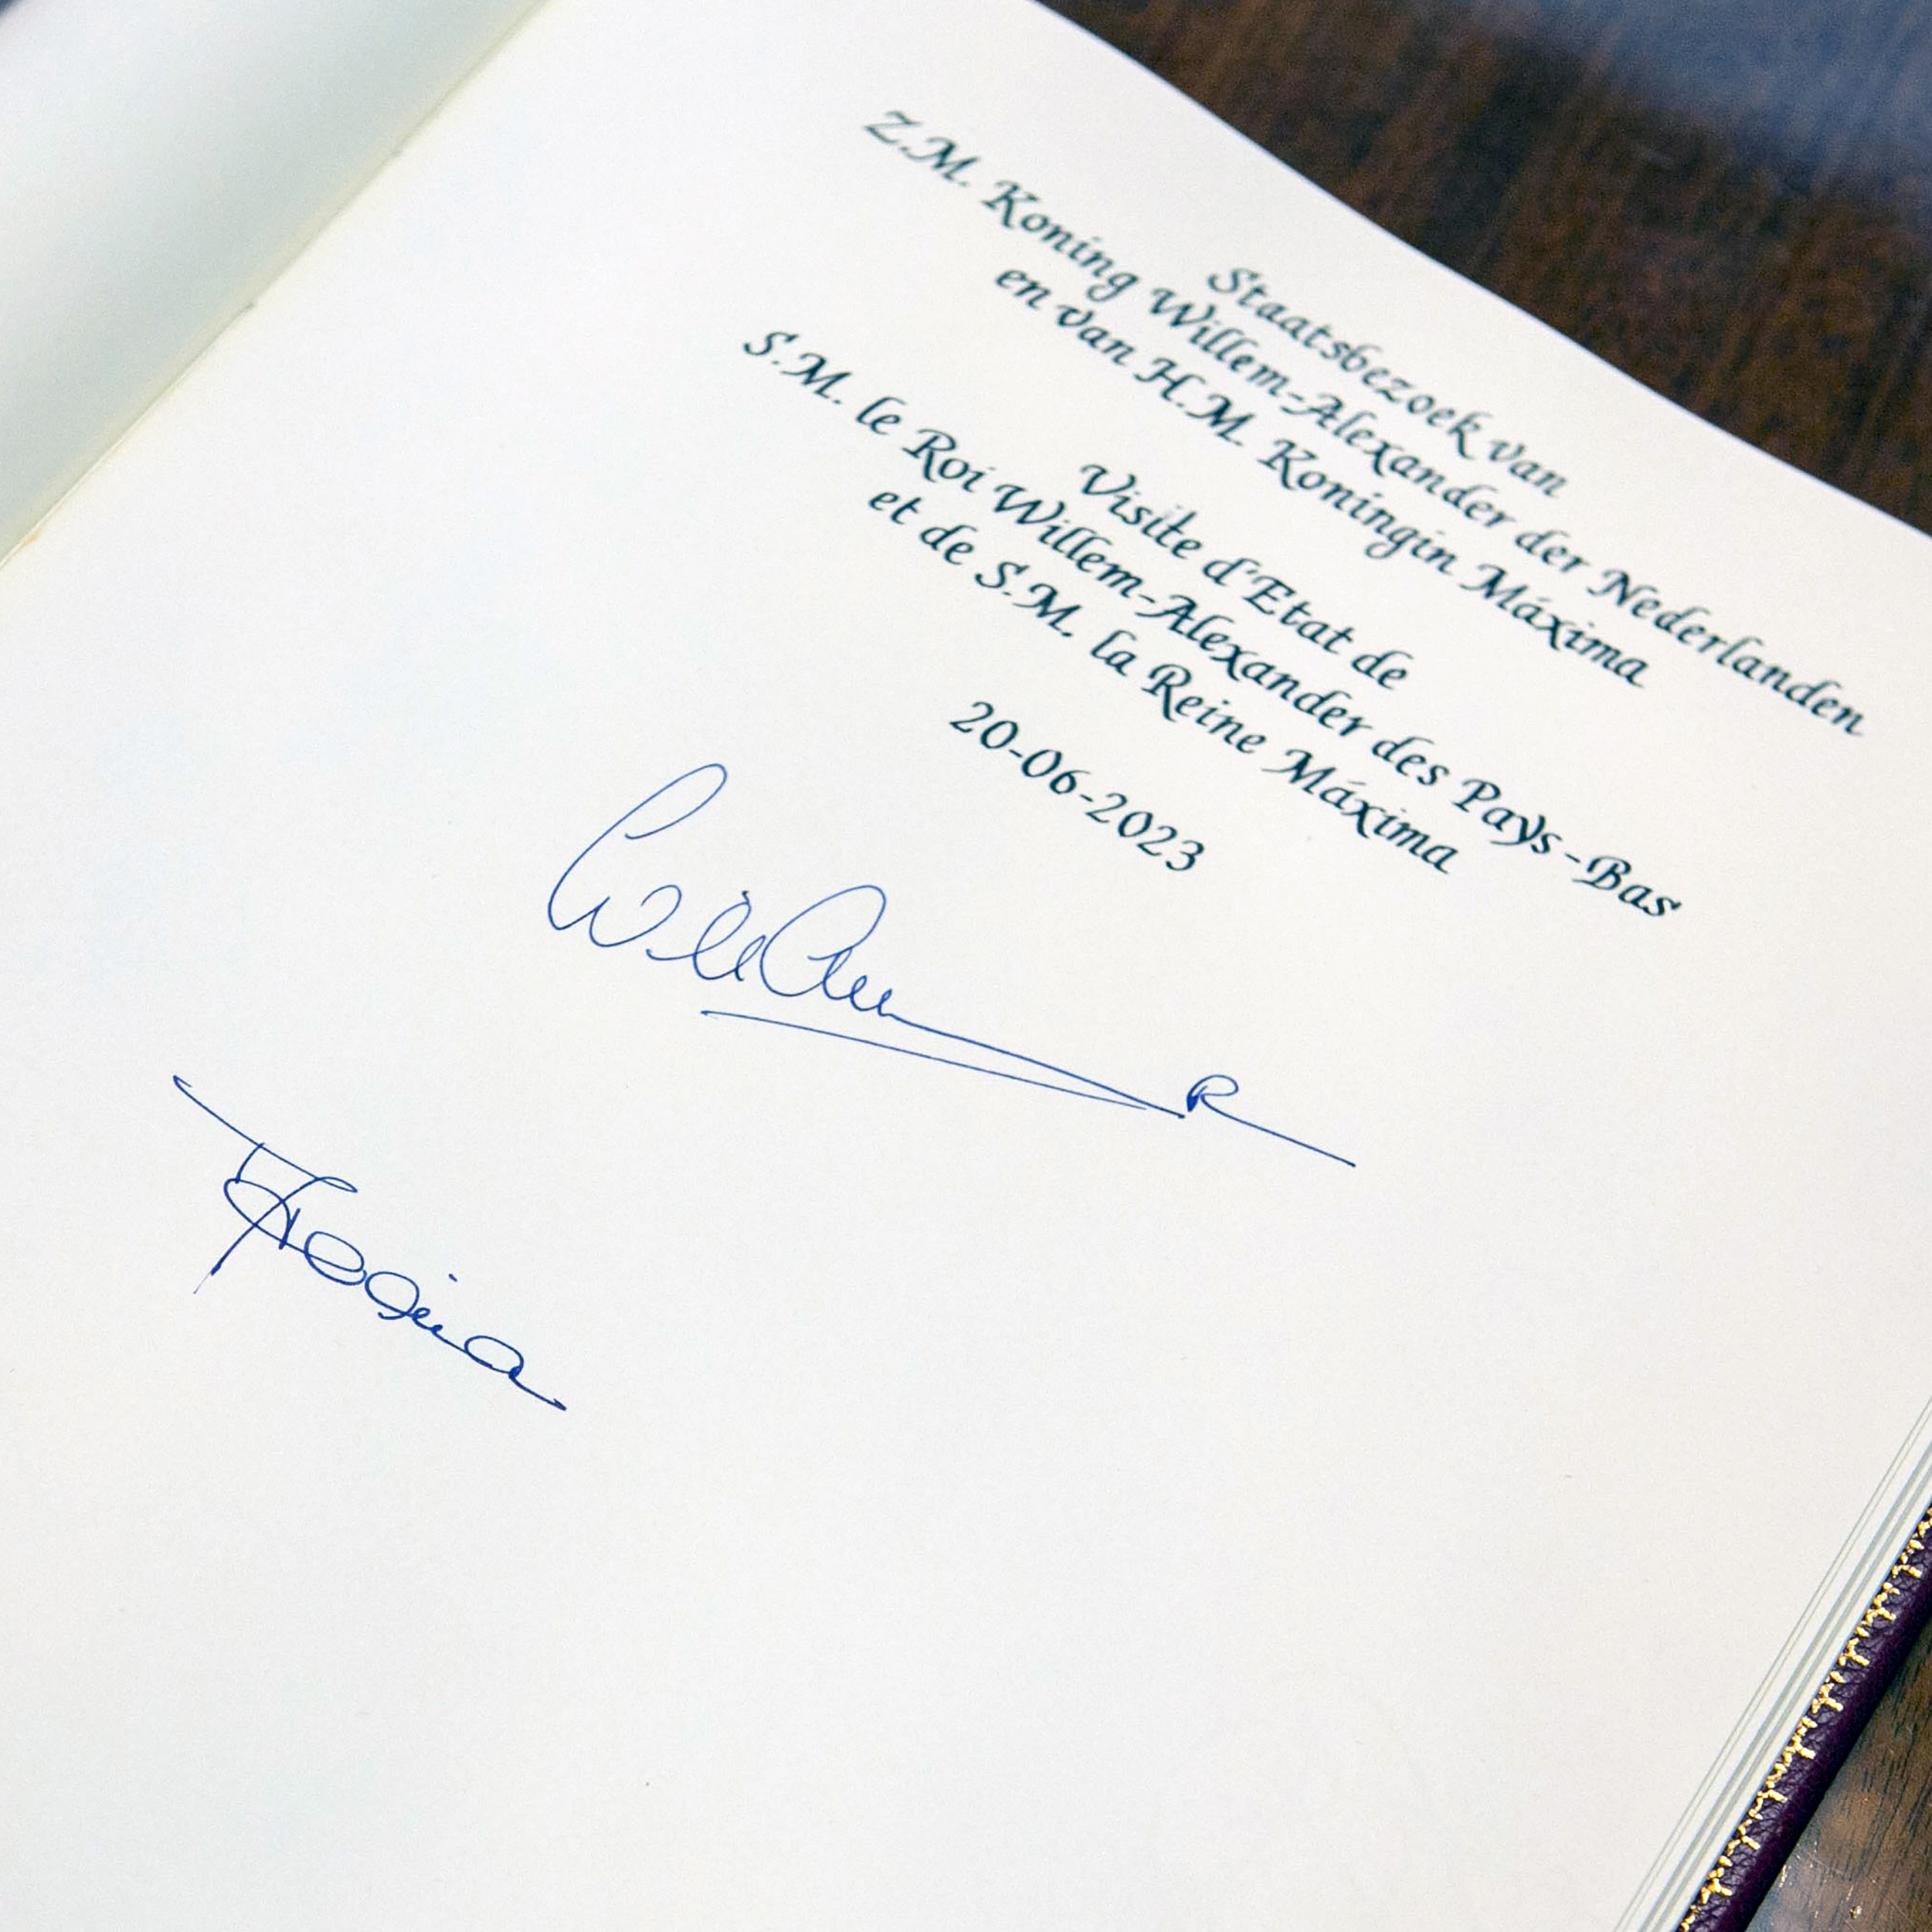 Staatsbezoek van
Z.M. Koning Willem-Alexander der Nederlanden
en van H.M. Koningin Máxima
Visite d'Etat de
S.M. le Roi Willem-Alexander des Pays-Bas
et de S.M. la Reine Máxima
20-06-2023
R